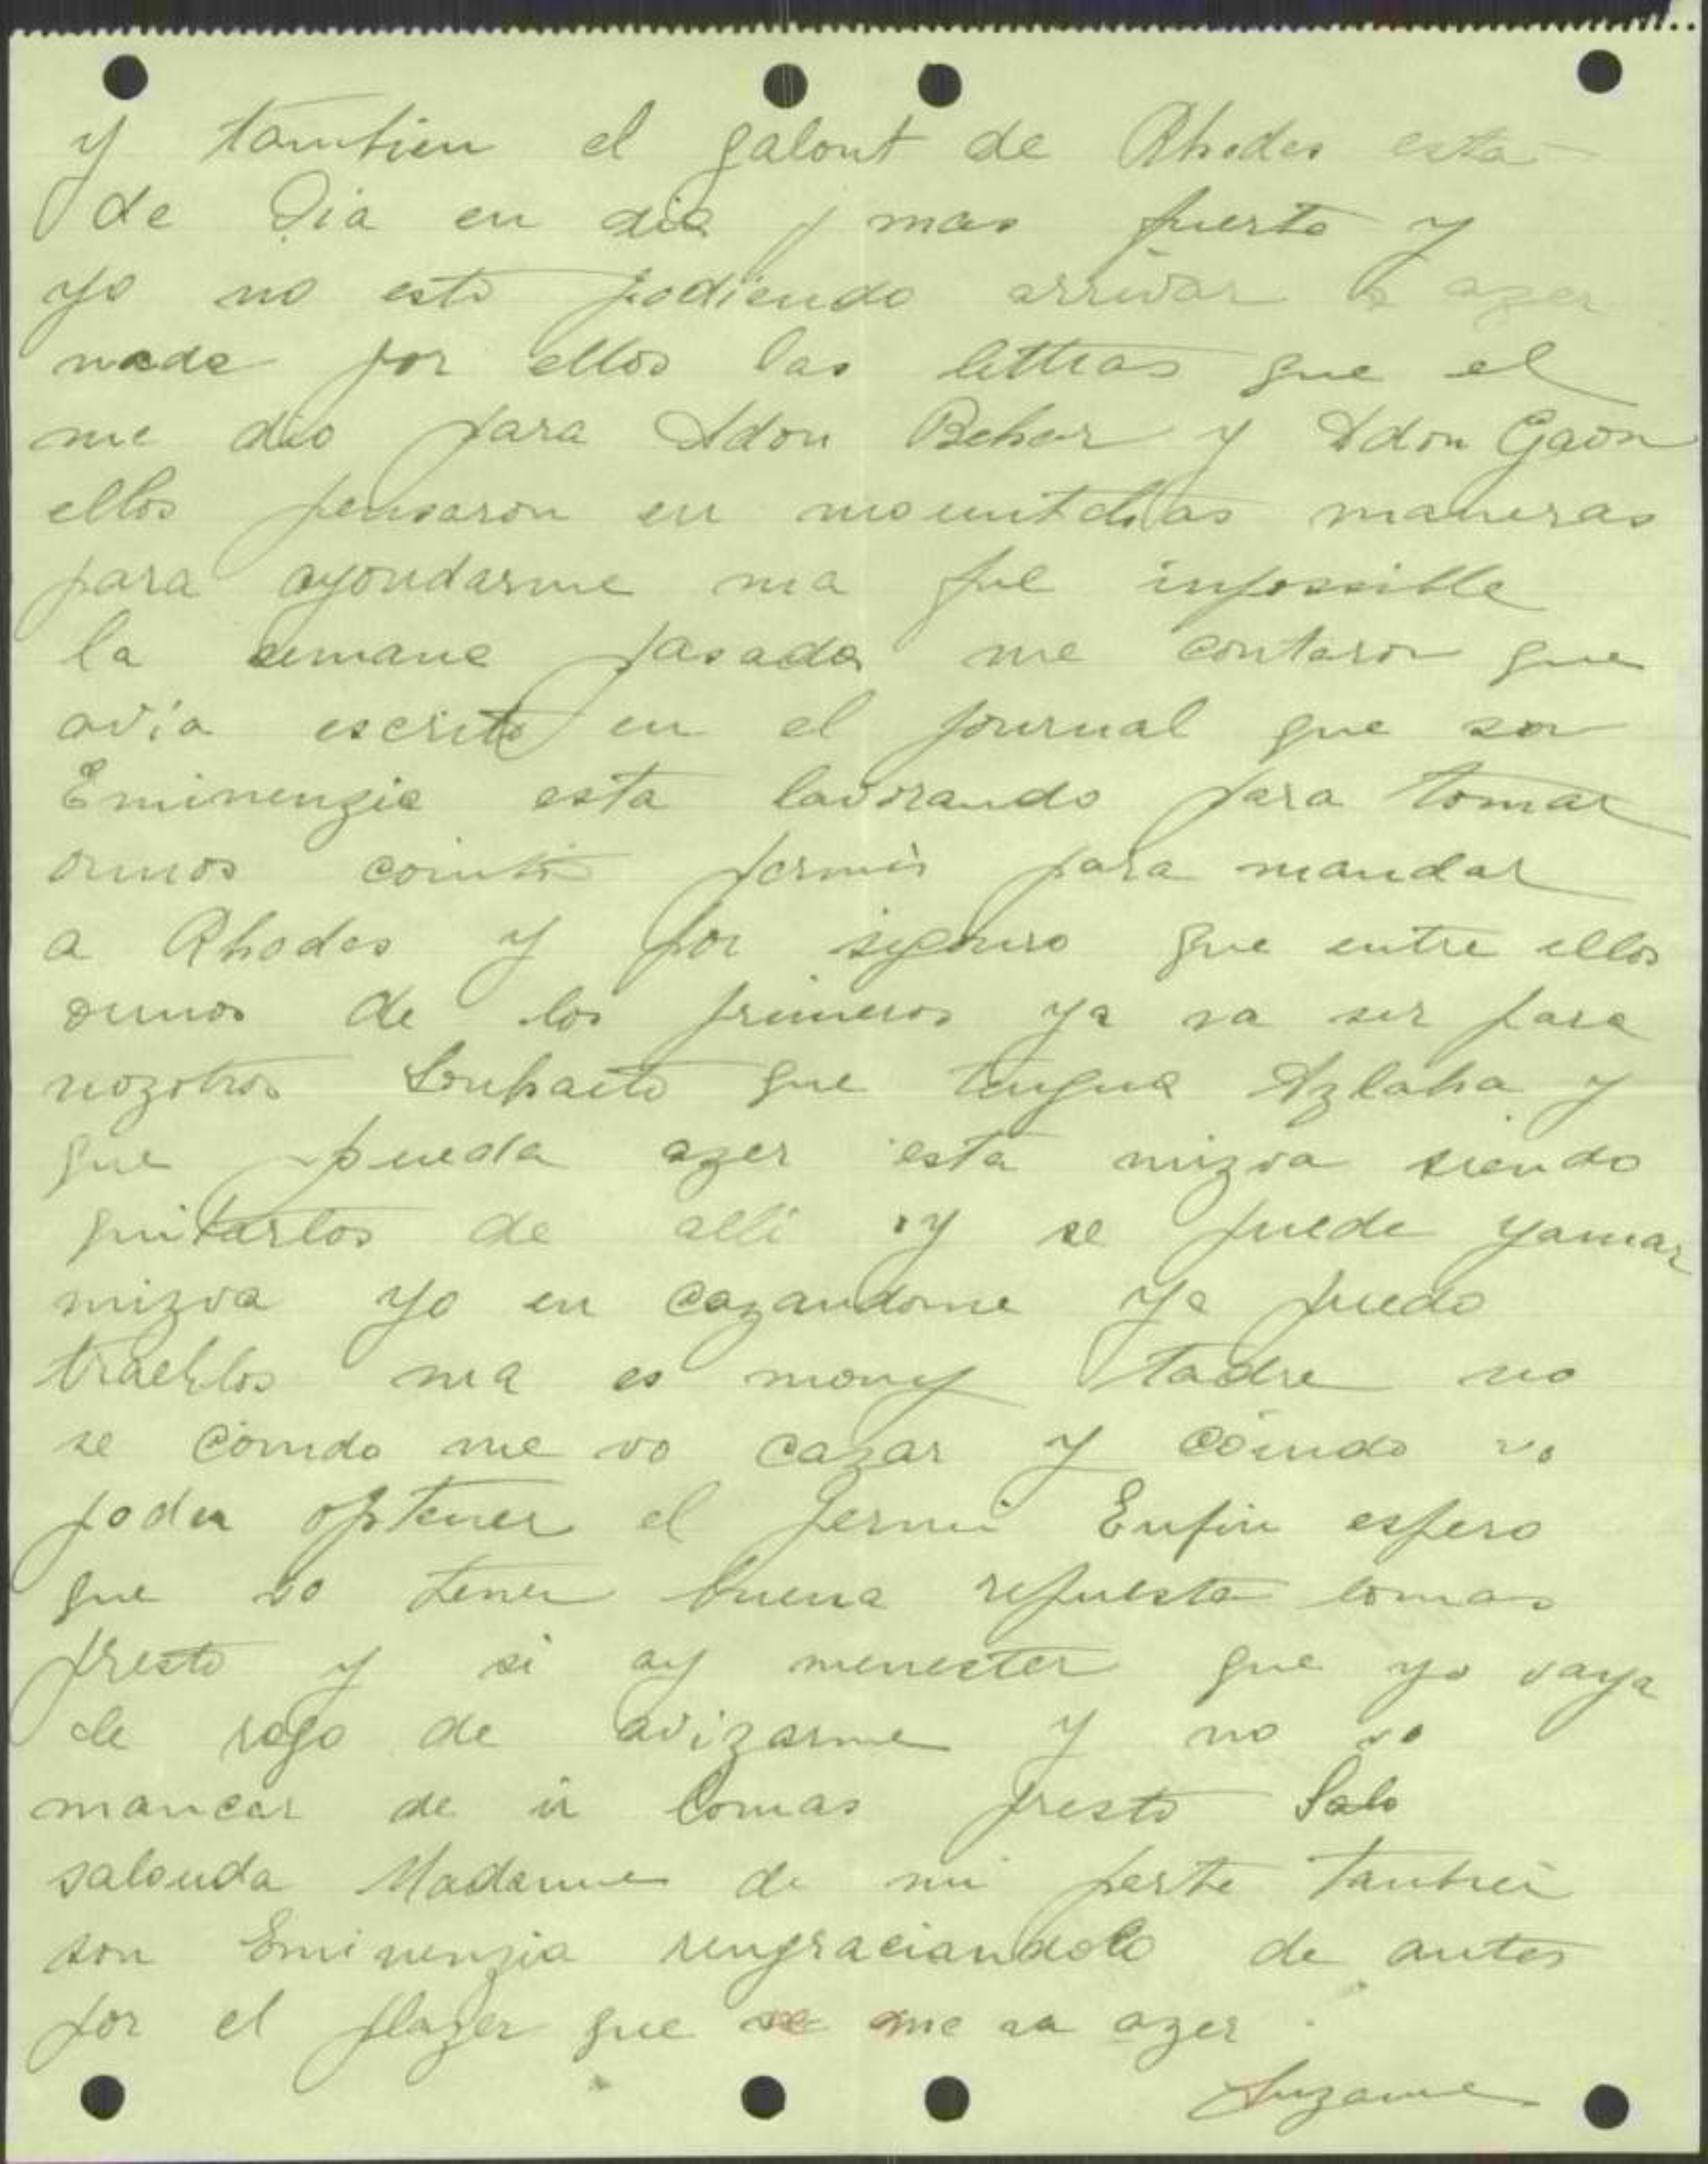 y tambien el galout de Rhodes esta
de Dia en dia mas fuerte y
yo no esto podiendo arrivar a azer
nada por ellos las lettras que el
me dio para Adon Behar y Adon Gaon
ellos pensaron en mountchas maneras
para ayoudarme ma fue impossible
la semana pasada me contaron que
avia escrito en el journal que son
Eminenzia esta lavorando para tomar
ounos permis para mandar
a Rhodes y por segouro que entre ellos
ounos de los primeros ya va ser para
nozotros que tengua Azlaha y
que pueda azer esta mizva siendo
quitarlos de alli y se puede yamar
mizva yo en cazandome ya puedo
traerlos ma es mouy tadre no
se couando me vo cazar y couando vo
poder optener el permi Enfin espero
que vo tener buena repuesta lomas
presto y si ay menester que yo vaya
le rogo de avizarme y no vo
mancar de ir lomas presto Salo
salouda Madame de mi parte tambien
son Eminenzia rengraciandolo de antes
por el plazer que me va azer.
Suzanne